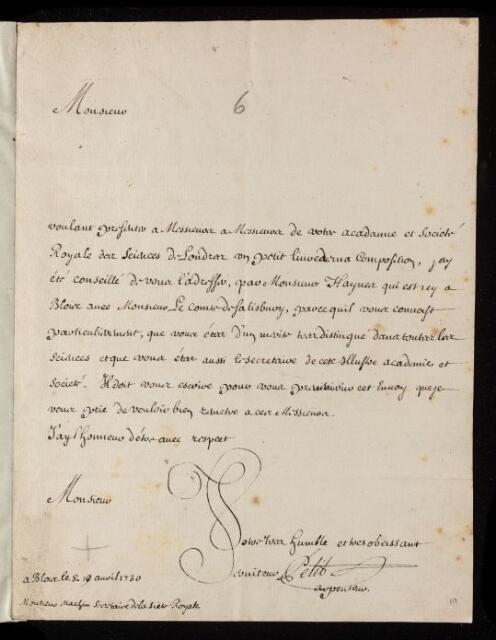 6
Monsieur
voulant presenter a Messieurs a Messieurs de votre academie et Societé
Royale des Siences de Londres un petit livre de ma Composition, j'ay
été conseillé de vous l'adresser, par Monsieur Haynes qui est icy a
Blois avec Monsieur Le Comte de Salisbury, parce qu'il vous connoist
particulierement, que vous étes d'un merite tres distingué dans toutes les
sciences et que vous etes aussi le secretaire de cete Illustre academie et
societé. Il doit vous escrire pour vous prevenir cet Envoy que je
vous prie de vouloir bien remetre a ces Messieurs.
J'ay l'honneur d'étre avec respect
Monsieur
Votre tres humble et tres obeissant
serviteur Petit
arpenteur
a Blois le 19 avril 1730
Monsieur Machin Secretaire de la Sieté Royale